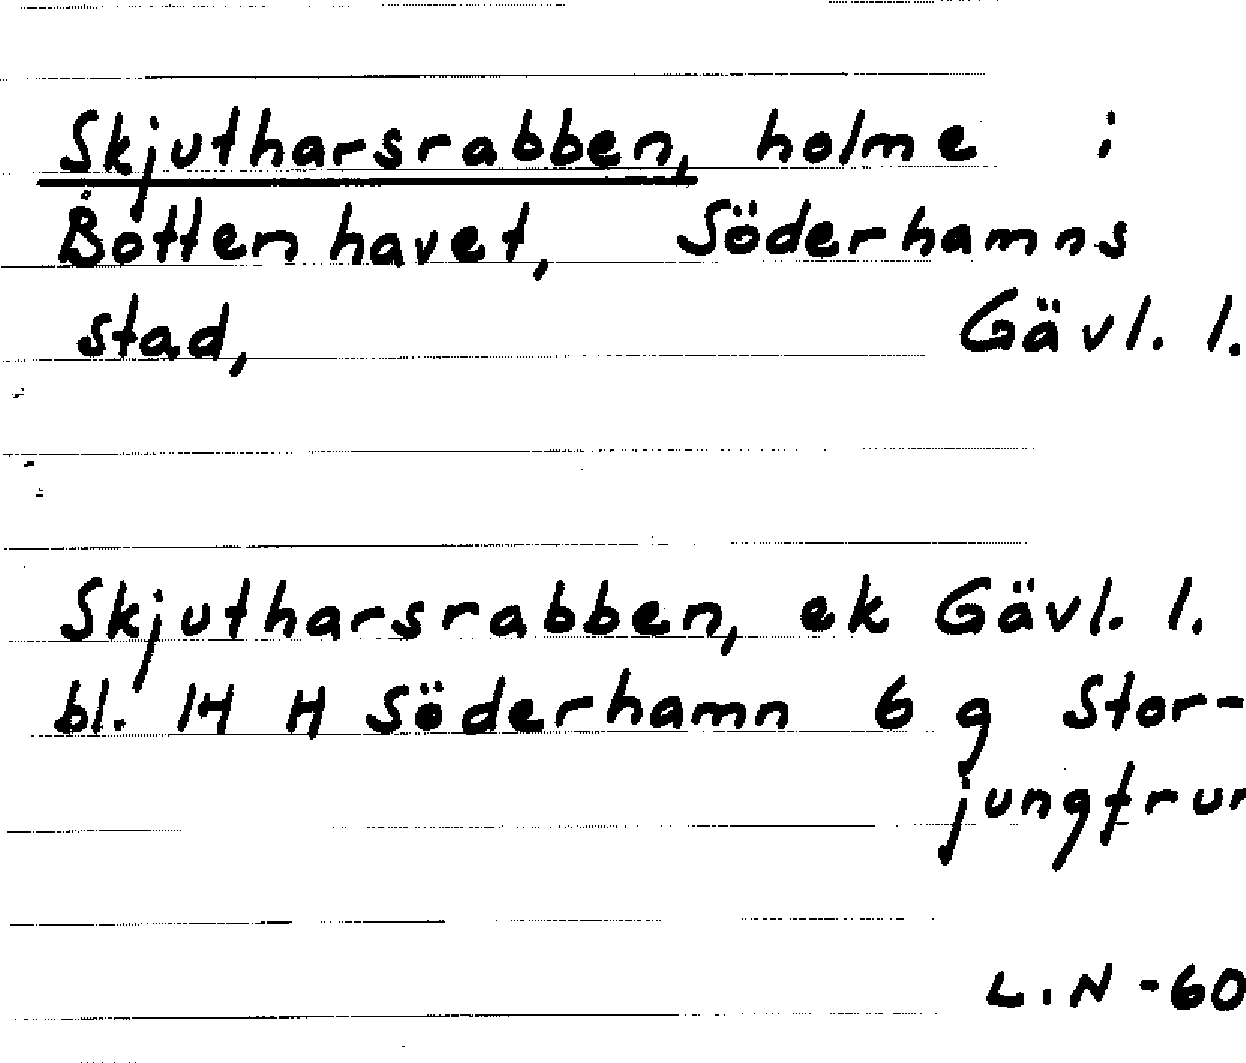 Skjutharsrabben, holme i
Bottenhavet, Söderhamns
stad, Gävl. l.
Skjutharsrabben, ek Gävl. l.
bl. 14 H Söderhamn 6 g Stor-
jungfrur
L.N -60